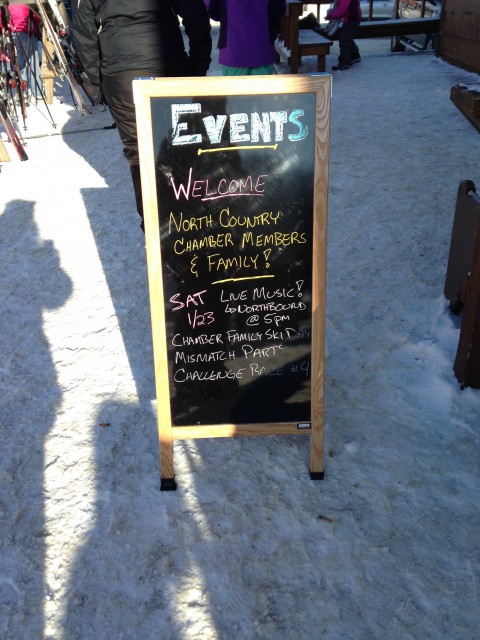 EVENTS
WELCOME
NORTH COUNTRY
CHAMBER MEMBERS
& FAMILY!
SAT LIVE MUSIC!
1/23 ↳ NORTHBOUND
@ 5PM
CHAMBER FAMILY SKI DAY
MISMATCH PARTS
CHALLENGE RACE #4